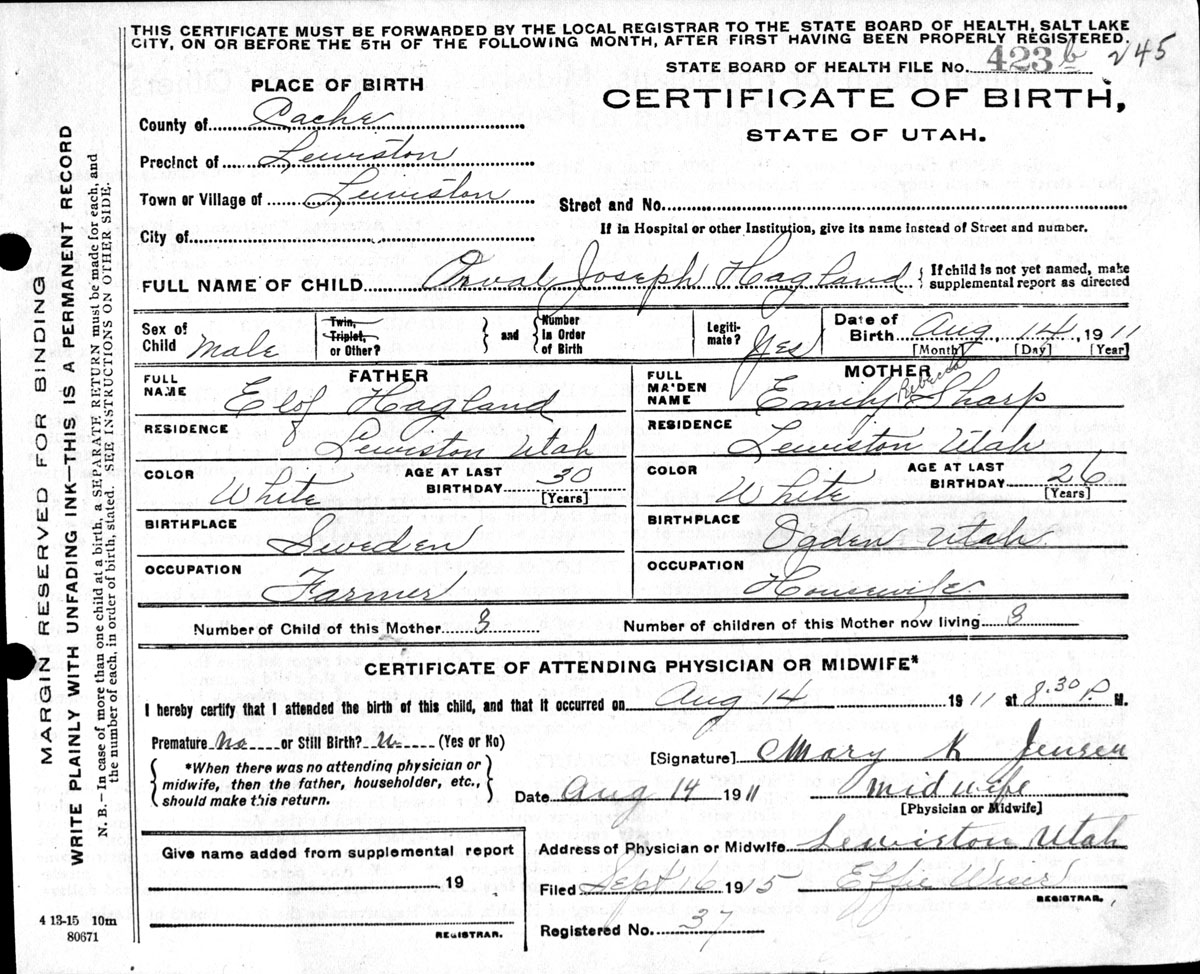 THIS CERTIFICATE MUST BE FORWARDED BY THE LOCAL REGISTRAR TO THE STATE BOARD OF HEALTH, SALT LAKE
CITY, ON OR BEFORE THE 5TH OF THE FOLLOWING MONTH, AFTER FIRST HAVING BEEN PROPERLY REGISTERED.
STATE BOARD OF HEALTH FILE No. 423 b 245
PLACE OF BIRTH
CERTIFICATE OF BIRTH,
STATE OF UTAH.
County of Cache
Precinct of Lewiston
Town or Village of Lewiston
Street and No.
City of
If in Hospital or other Institution, give its name instead of Street and number.
FULL NAME OF CHILD Orval Joseph Hagland { If child is not yet named, make
supplemental report as directed
Sex of Child Male
Twin, Triplet, or Other?
and
Number in Order of Birth
Legiti-mate? Yes
Date of Birth Aug 14, 1911
[Month] [Day] [Year]
FATHER
FULL NAME Elof Hagland
RESIDENCE Lewiston Utah
COLOR White AGE AT LAST BIRTHDAY 30
[Years]
BIRTHPLACE Sweden
OCCUPATION Farmer
MOTHER
FULL MAIDEN NAME Emily Rebecca Sharp
RESIDENCE Lewiston Utah
COLOR White AGE AT LAST BIRTHDAY 26
[Years]
BIRTHPLACE Ogden Utah
OCCUPATION Housewife
Number of Child of this Mother 3 Number of children of this Mother now living 3
CERTIFICATE OF ATTENDING PHYSICIAN OR MIDWIFE*
I hereby certify that I attended the birth of this child, and that it occurred on Aug 14 1911 at 8.30 P. M.
Premature No or Still Birth? (Yes or No)
*When there was no attending physician or
midwife, then the father, householder, etc.,
should make this return.
[Signature] Mary K Jensen
Date Aug 14 1911 Midwife
[Physician or Midwife]
Give name added from supplemental report
19
REGISTRAR.
Address of Physician or Midwife Lewiston Utah
Filed Sept 16 1915 Effie Wiser
REGISTRAR.
Registered No. 37
4 13-15 10m
80671
MARGIN RESERVED FOR BINDING
WRITE PLAINLY WITH UNFADING INK—THIS IS A PERMANENT RECORD
N. B.—In case of more than one child at a birth, a SEPARATE RETURN must be made for each, and
the number of each, in order of birth, stated. SEE INSTRUCTIONS ON OTHER SIDE.